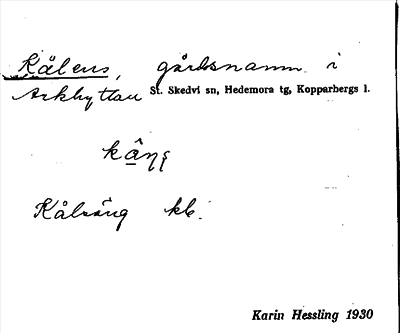 Kålens, gårdsnamn i
Arkhyttan St. Skedvi sn, Hedemora tg, Kopparbergs l.
Kålsäng kb.
Karin Hessling 1930